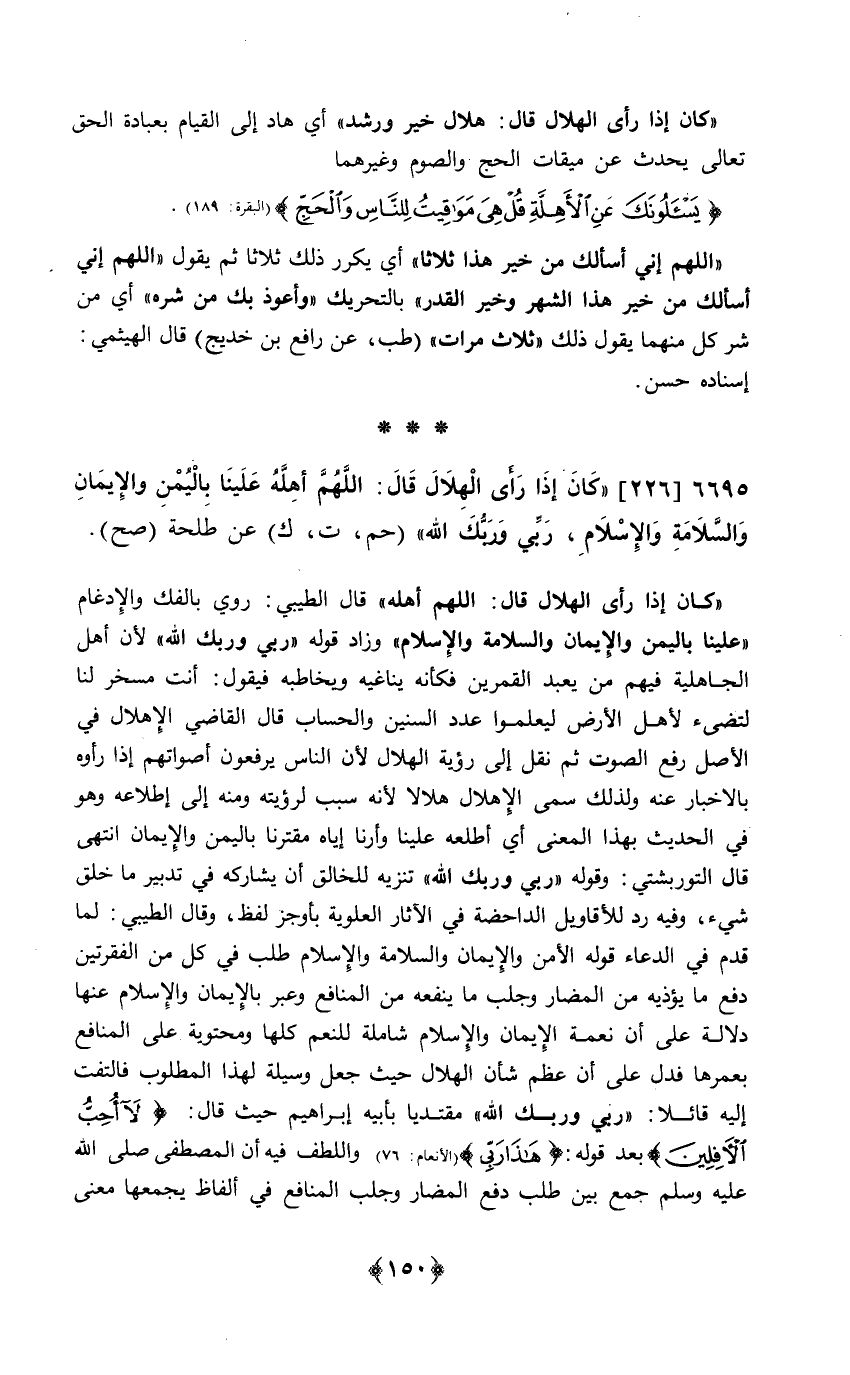 «كان إذا رأى الهلال قال: هلال خير ورشد» أي هاد إلى القيام بعبادة الحق
تعالى يحدث عن ميقات الحج والصوم وغيرهما
﴿ يَسْـَٔلُونَكَ عَنِ ٱلْأَهِلَّةِ قُلْ هِىَ مَوَٰقِيتُ لِلنَّاسِ وَٱلْحَجِّ ﴾ (البقرة: ١٨٩) .
«اللهم إني أسألك من خير هذا ثلاثا» أي يكرر ذلك ثلاثا ثم يقول «اللهم إني
أسألك من خير هذا الشهر وخير القدر» بالتحريك «وأعوذ بك من شره» أي من
شر كل منهما يقول ذلك «ثلاث مرات» (طب، عن رافع بن خديج) قال الهيثمي:
إسناده حسن.
* * *
٦٦٩٥ [٢٢٦] «كَانَ إذَا رَأَى الْهِلَالَ قَالَ: اللَّهُمَّ أهِلَّهُ عَلَينَا بِالْيُمْنِ والإِيمَانِ
وَالسَّلَامَةِ وَالإِسْلَامِ، رَبِّي وَرَبُّكَ الله» (حم، ت، ك) عن طلحة (صح).
«كـان إذا رأى الهلال قال: اللهم أهله» قال الطيبي: روي بالفك والإدغام
«علينا باليمن والإيمان والسلامة والإسلام» وزاد قوله «ربي وربك الله» لأن أهل
الجـاهلية فيهم من يعبد القمرين فكأنه يناغيه ويخاطبه فيقول: أنت مسخر لنا
لتضىء لأهـل الأرض ليعلمـوا عدد السنين والحساب قال القاضي الإهلال في
الأصل رفع الصوت ثم نقل إلى رؤية الهلال لأن الناس يرفعون أصواتهم إذا رأوه
بالاخبار عنه ولذلك سمى الإهلال هلالا لأنه سبب لرؤيته ومنه إلى إطلاعه وهو
في الحديث بهذا المعنى أي أطلعه علينا وأرنا إياه مقترنا باليمن والإيمان انتهى
قال التوربشتي: وقوله «ربي وربك الله» تنزيه للخالق أن يشاركه في تدبير ما خلق
شيء، وفيه رد للأقاويل الداحضة في الآثار العلوية بأوجز لفظ، وقال الطيبي: لما
قدم في الدعاء قوله الأمن والإيمان والسلامة والإسلام طلب في كل من الفقرتين
دفع ما يؤذيه من المضار وجلب ما ينفعه من المنافع وعبر بالإيمان والإسلام عنها
دلالـة على أن نعمـة الإيمان والإسلام شاملة للنعم كلها ومحتوية على المنافع
بعمرها فدل على أن عظم شأن الهلال حيث جعل وسيلة لهذا المطلوب فالتفت
إليه قائـلا: «ربي وربـك الله» مقتديا بأبيه إبـراهيم حيث قال: ﴿ لَآ أُحِبُّ
ٱلْـَٔافِلِينَ ﴾ بعد قوله: ﴿ هَـٰذَا رَبِّى ﴾ (الأنعام: ٧٦) واللطف فيه أن المصطفى صلى الله
عليه وسلم جمع بين طلب دفع المضار وجلب المنافع في ألفاظ يجمعها معنى
﴿١٥٠﴾